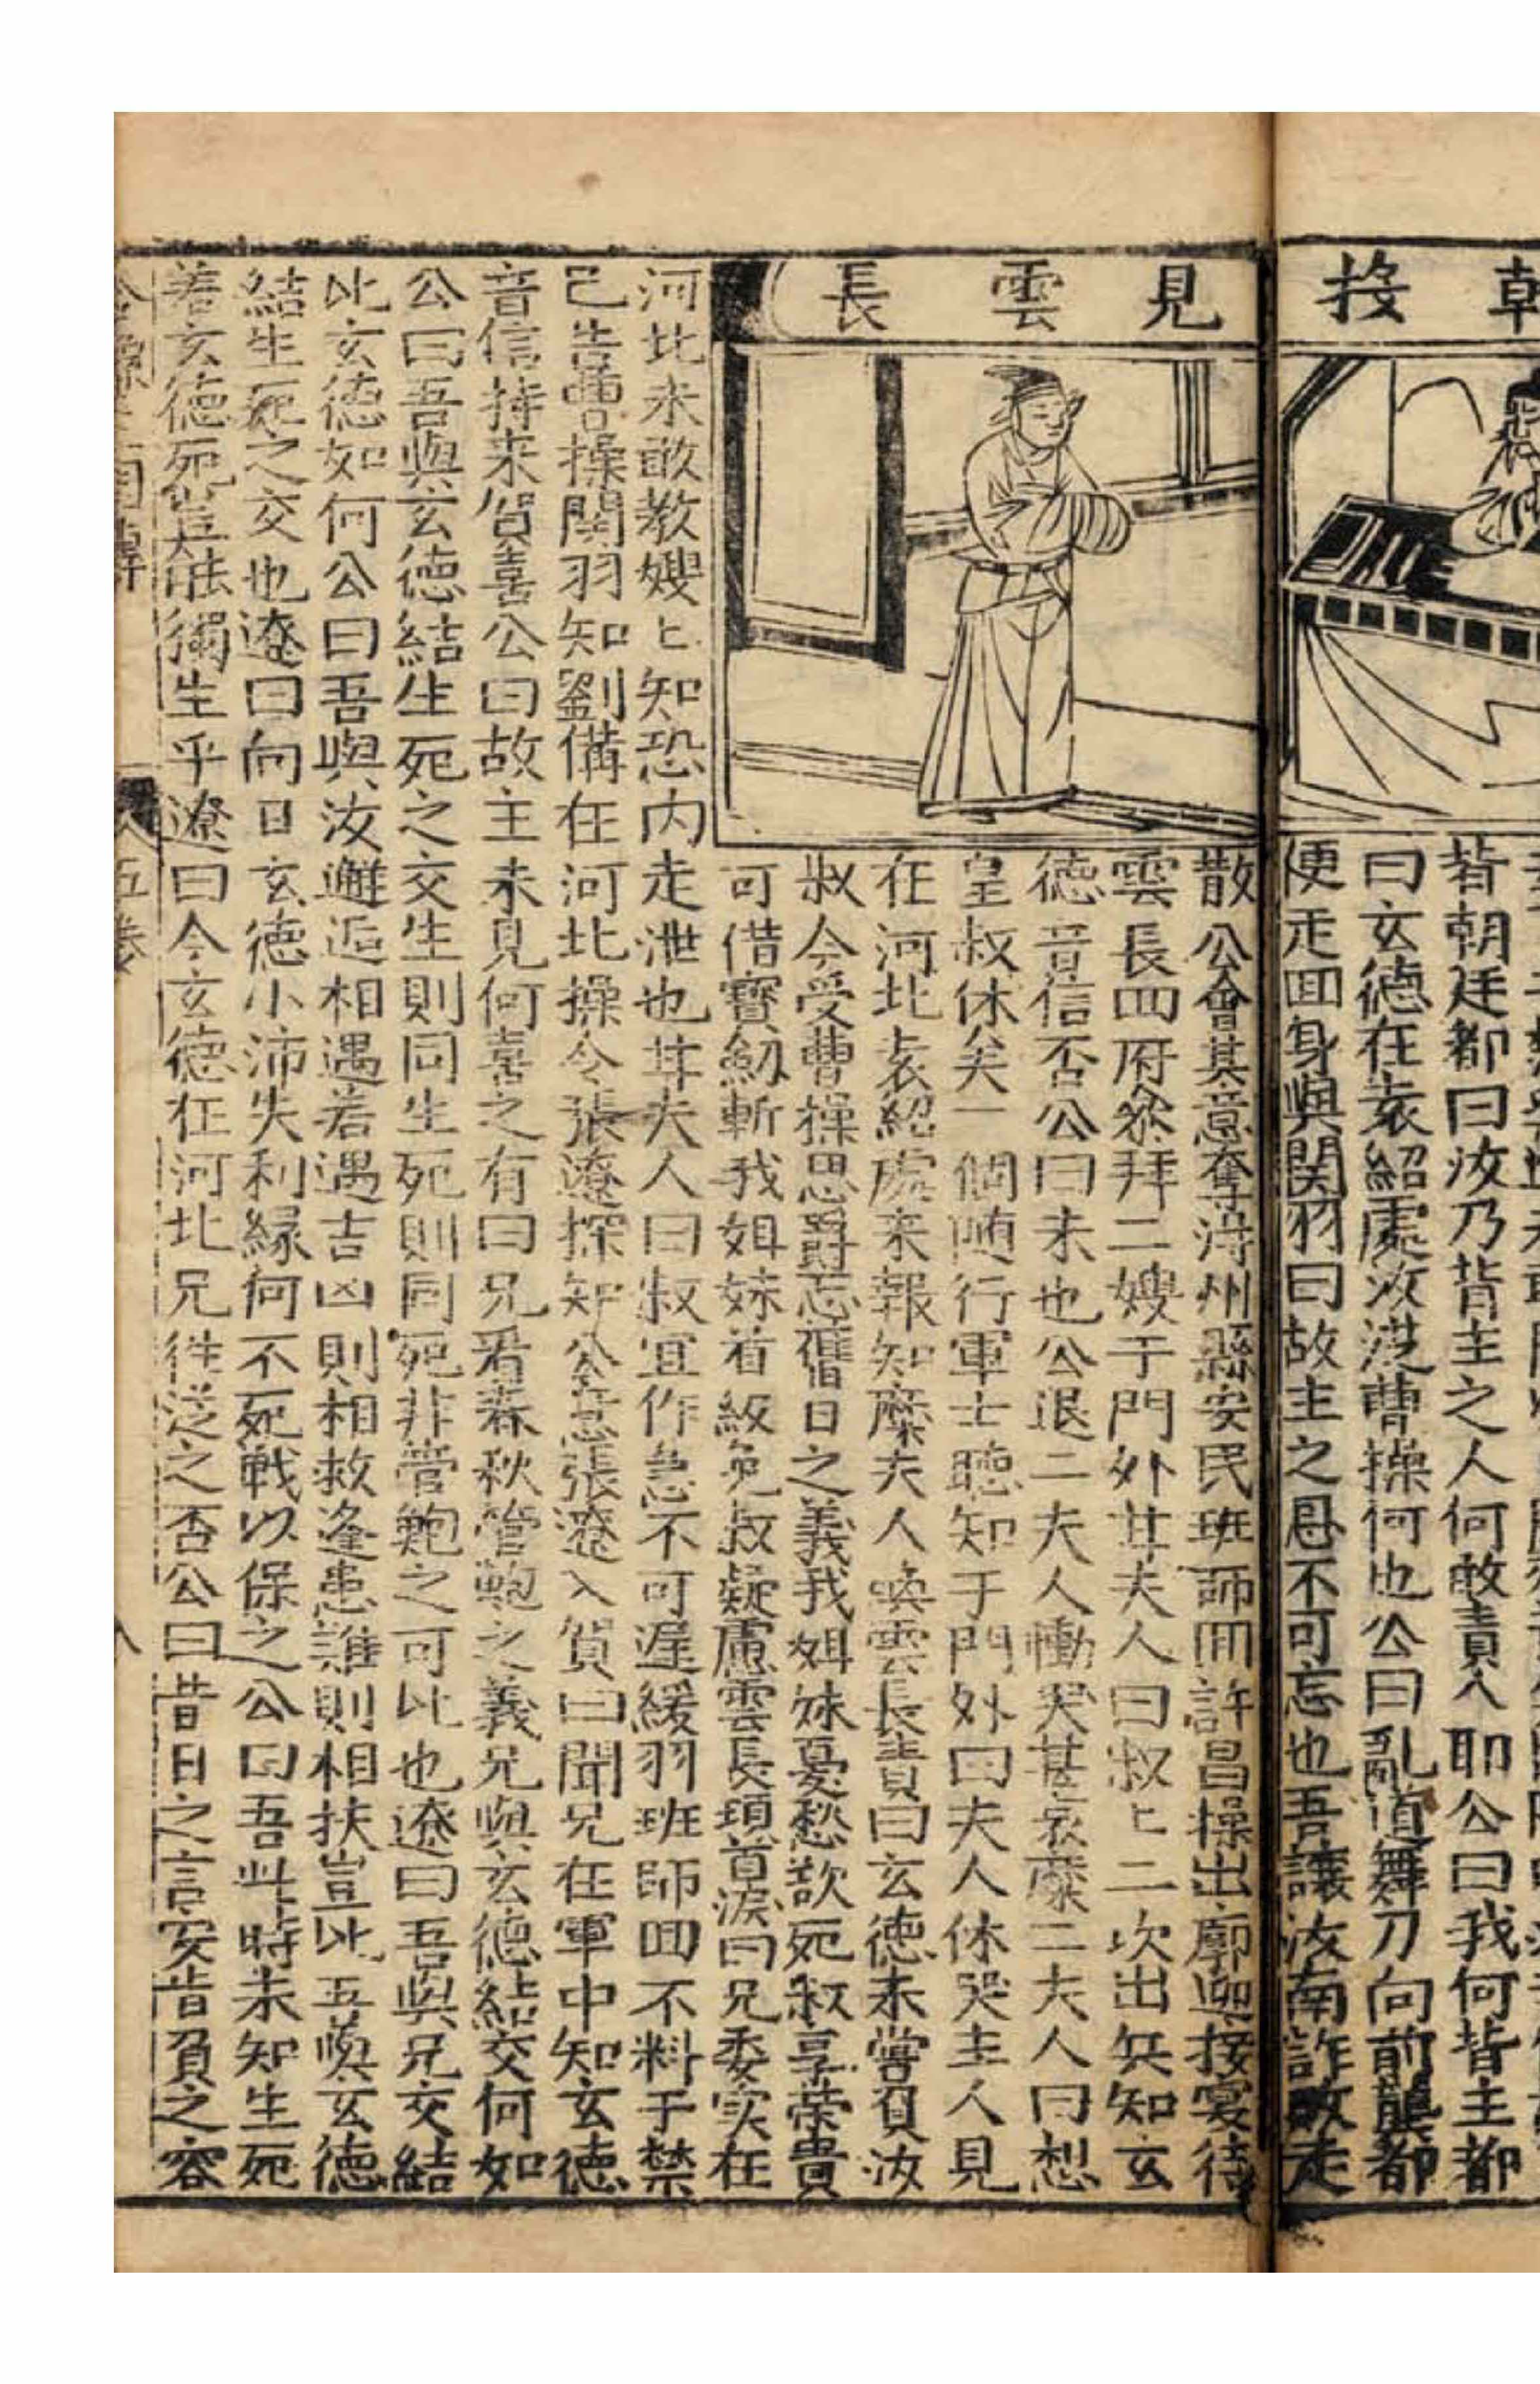 朝
投
皆朝廷都曰汝乃背主之人何敢責人耶公曰我何背主都
曰玄德在袁紹處汝從曹操何也公曰亂道舞刀向前龔都
便走回身與関羽曰故主之恩不可忘也吾讓汝南詐敗走
見雲長
散公會其意奪淂州縣安民班師囬許昌操出廓迎接宴待
雲長囬府叅拜二嫂于門外甘夫人曰叔〻二次出兵知玄
德音信否公曰未也公退二夫人慟哭甚哀糜二夫人曰想
皇叔休矣一個随行軍士聴知于門外曰夫人休哭主人見
在河北袁紹處来報知糜夫人喚雲長責曰玄德未嘗負汝
叔今受曹操恩爵忘舊日之義我姐妹憂愁欲死叔享荣貴
可借寶劔斬我姐妹首級免叔疑慮雲長頓首淚曰兄委实在
河北未敢教嫂〻知恐内走泄也甘夫人曰叔宜作急不可遲緩羽班師回不料于禁
已告曹操関羽知劉備在河北操令張遼探知公意張遼入賀曰聞兄在軍中知玄德
音信持来賀喜公曰故主未見何喜之有曰兄看春秋管鮑之義兄與玄德結交何如
公曰吾與玄德結生死之交生則同生死則同死非管鮑之可比也遼曰吾與兄交結
比玄德如何公曰吾與汝邂逅相遇若遇吉凶則相救逢患難則相扶豈比吾與玄德
結生死之交也遼曰向日玄德小沛失利縁何不死戦以保之公曰吾此時未知生死
若玄德死豈能獨生乎遼曰今玄德在河北兄徃從之否公曰昔日之言安肯負之容
五卷